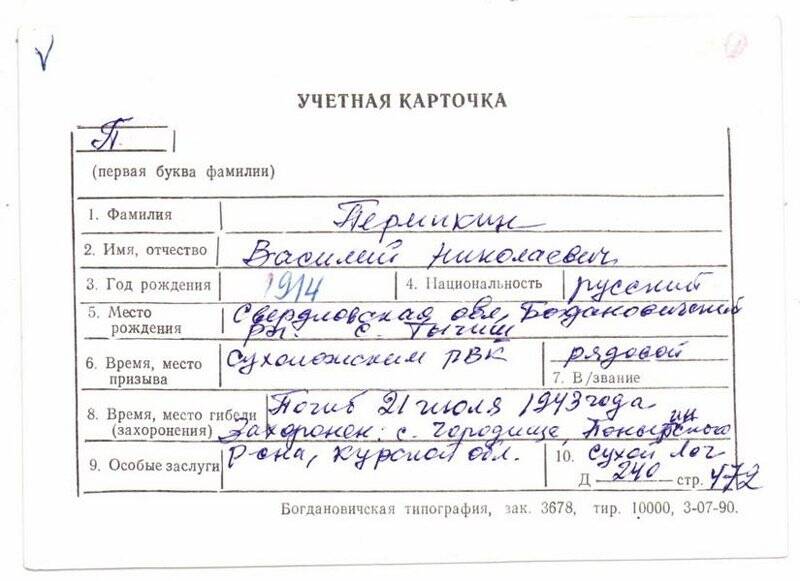 УЧЕТНАЯ КАРТОЧКА
П.
(первая буква фамилии)
1. Фамилия Пермикин
2. Имя, отчество Василий Николаевич
3. Год рождения 1914 4. Национальность русский
5. Место рождения Свердловская обл., Богдановичский
рн. с. Тыгиш
6. Время, место призыва Сухоложским РВК рядовой
7. В/звание
8. Время, место гибели Погиб 21 июля 1943 года
(захоронения) Захоронен: с. Городище,
9. Особые заслуги р-она, Курской обл. 10. Сухой Лог
Д 240 стр. 472
Богдановичская типография, зак. 3678, тир. 10000, 3-07-90.